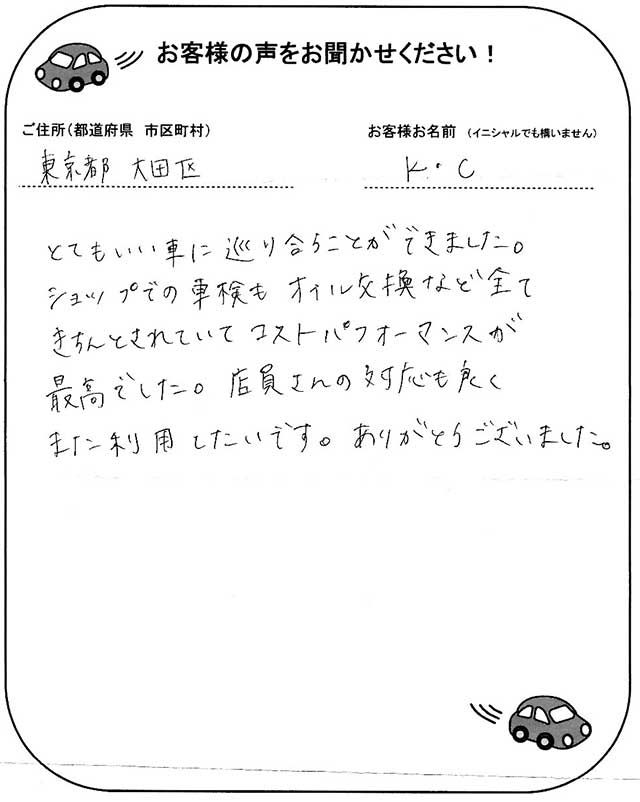 お客様の声をお聞かせください！
ご住所（都道府県　市区町村）　お客様お名前　（イニシャルでも構いません）
東京都 大田区　K・C
とてもいい車に巡り合うことができました。
ショップでの車検もオイル交換など全て
きちんとされていてコストパフォーマンスが
最高でした。店員さんの対応も良く
また利用したいです。ありがとうございました。